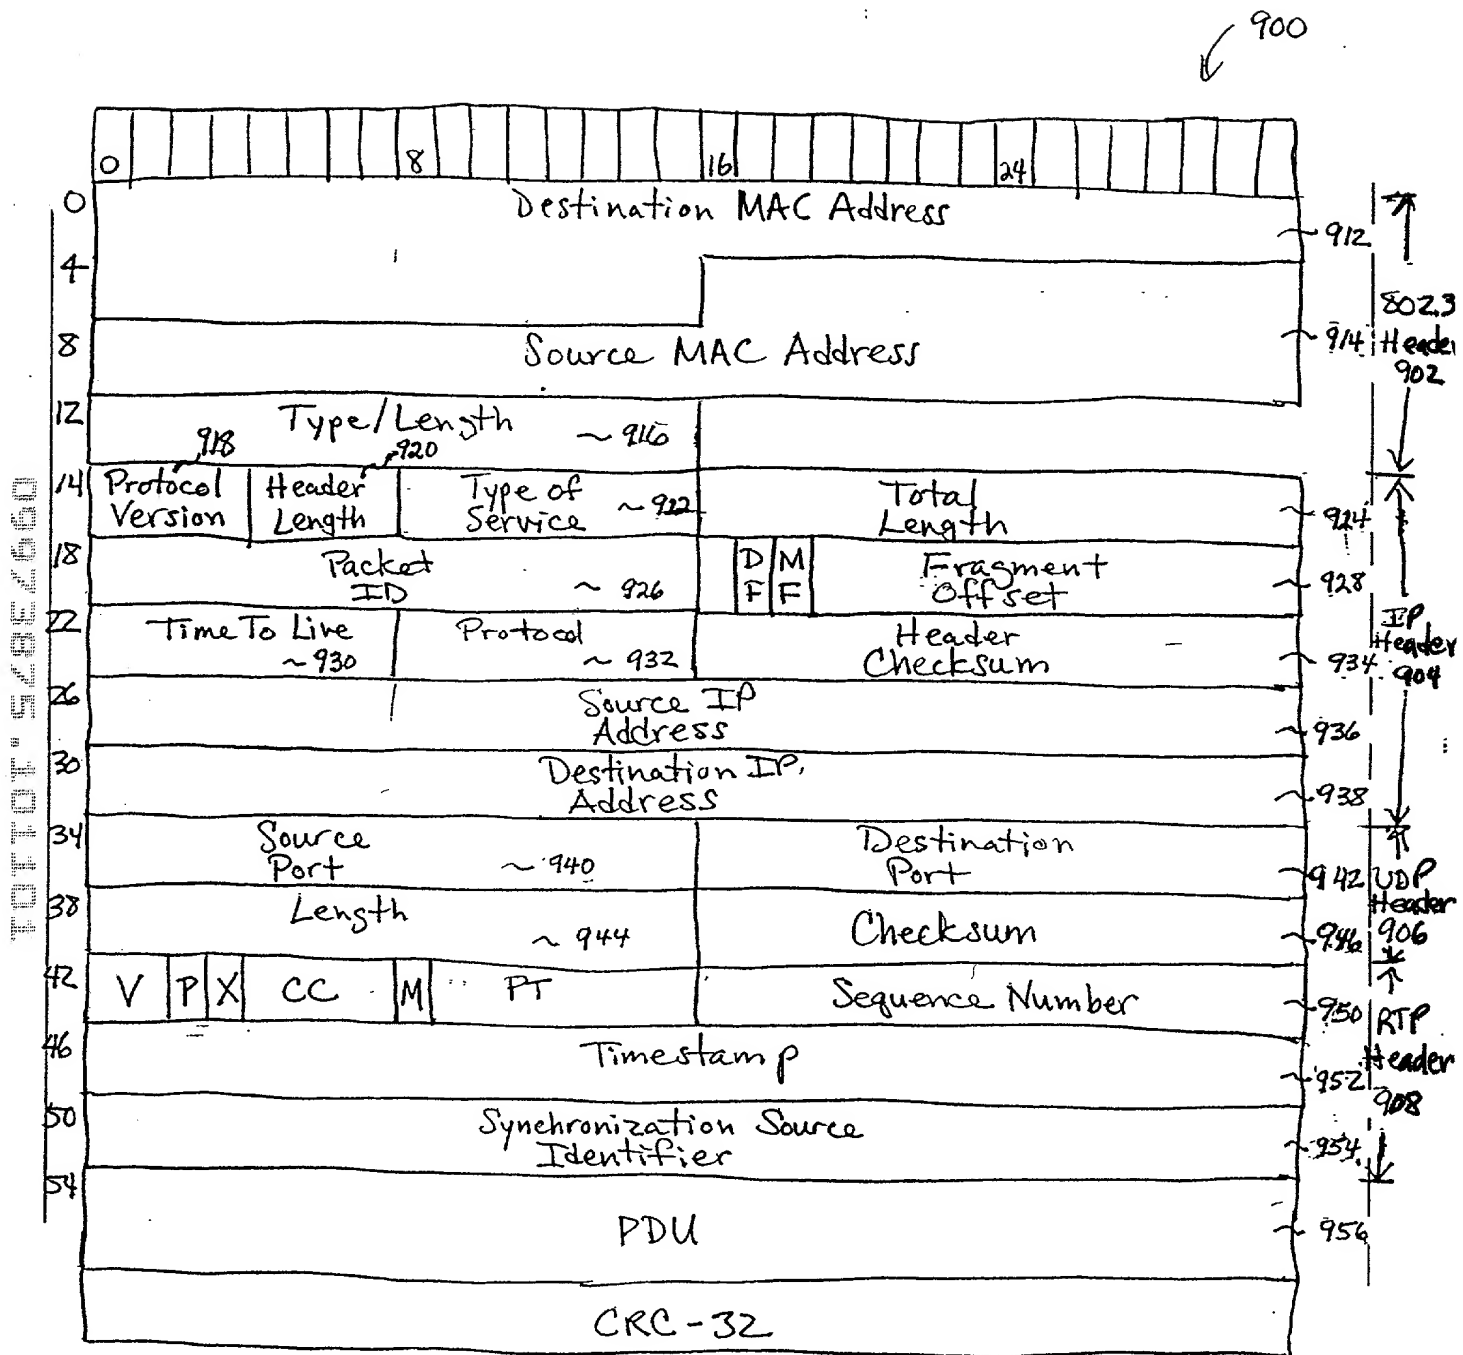 900
0 8 16 24
0 Destination MAC Address 912
4
8 Source MAC Address 914
802.3
Header
902
12 Type/Length ~916
918 920
14 Protocol Version Header Length Type of Service ~922 Total Length 924
18 Packet ID ~926 DF MF Fragment Offset 928
22 Time To Live ~930 Protocol ~932 Header Checksum 934
IP
Header
904
26 Source IP Address 936
30 Destination IP Address 938
34 Source Port ~940 Destination Port 942
38 Length ~944 Checksum 946
UDP
Header
906
42 V P X CC M PT Sequence Number 950
46 Timestamp 952
RTP
Header
908
50 Synchronization Source Identifier 954
54 PDU 956
CRC-32